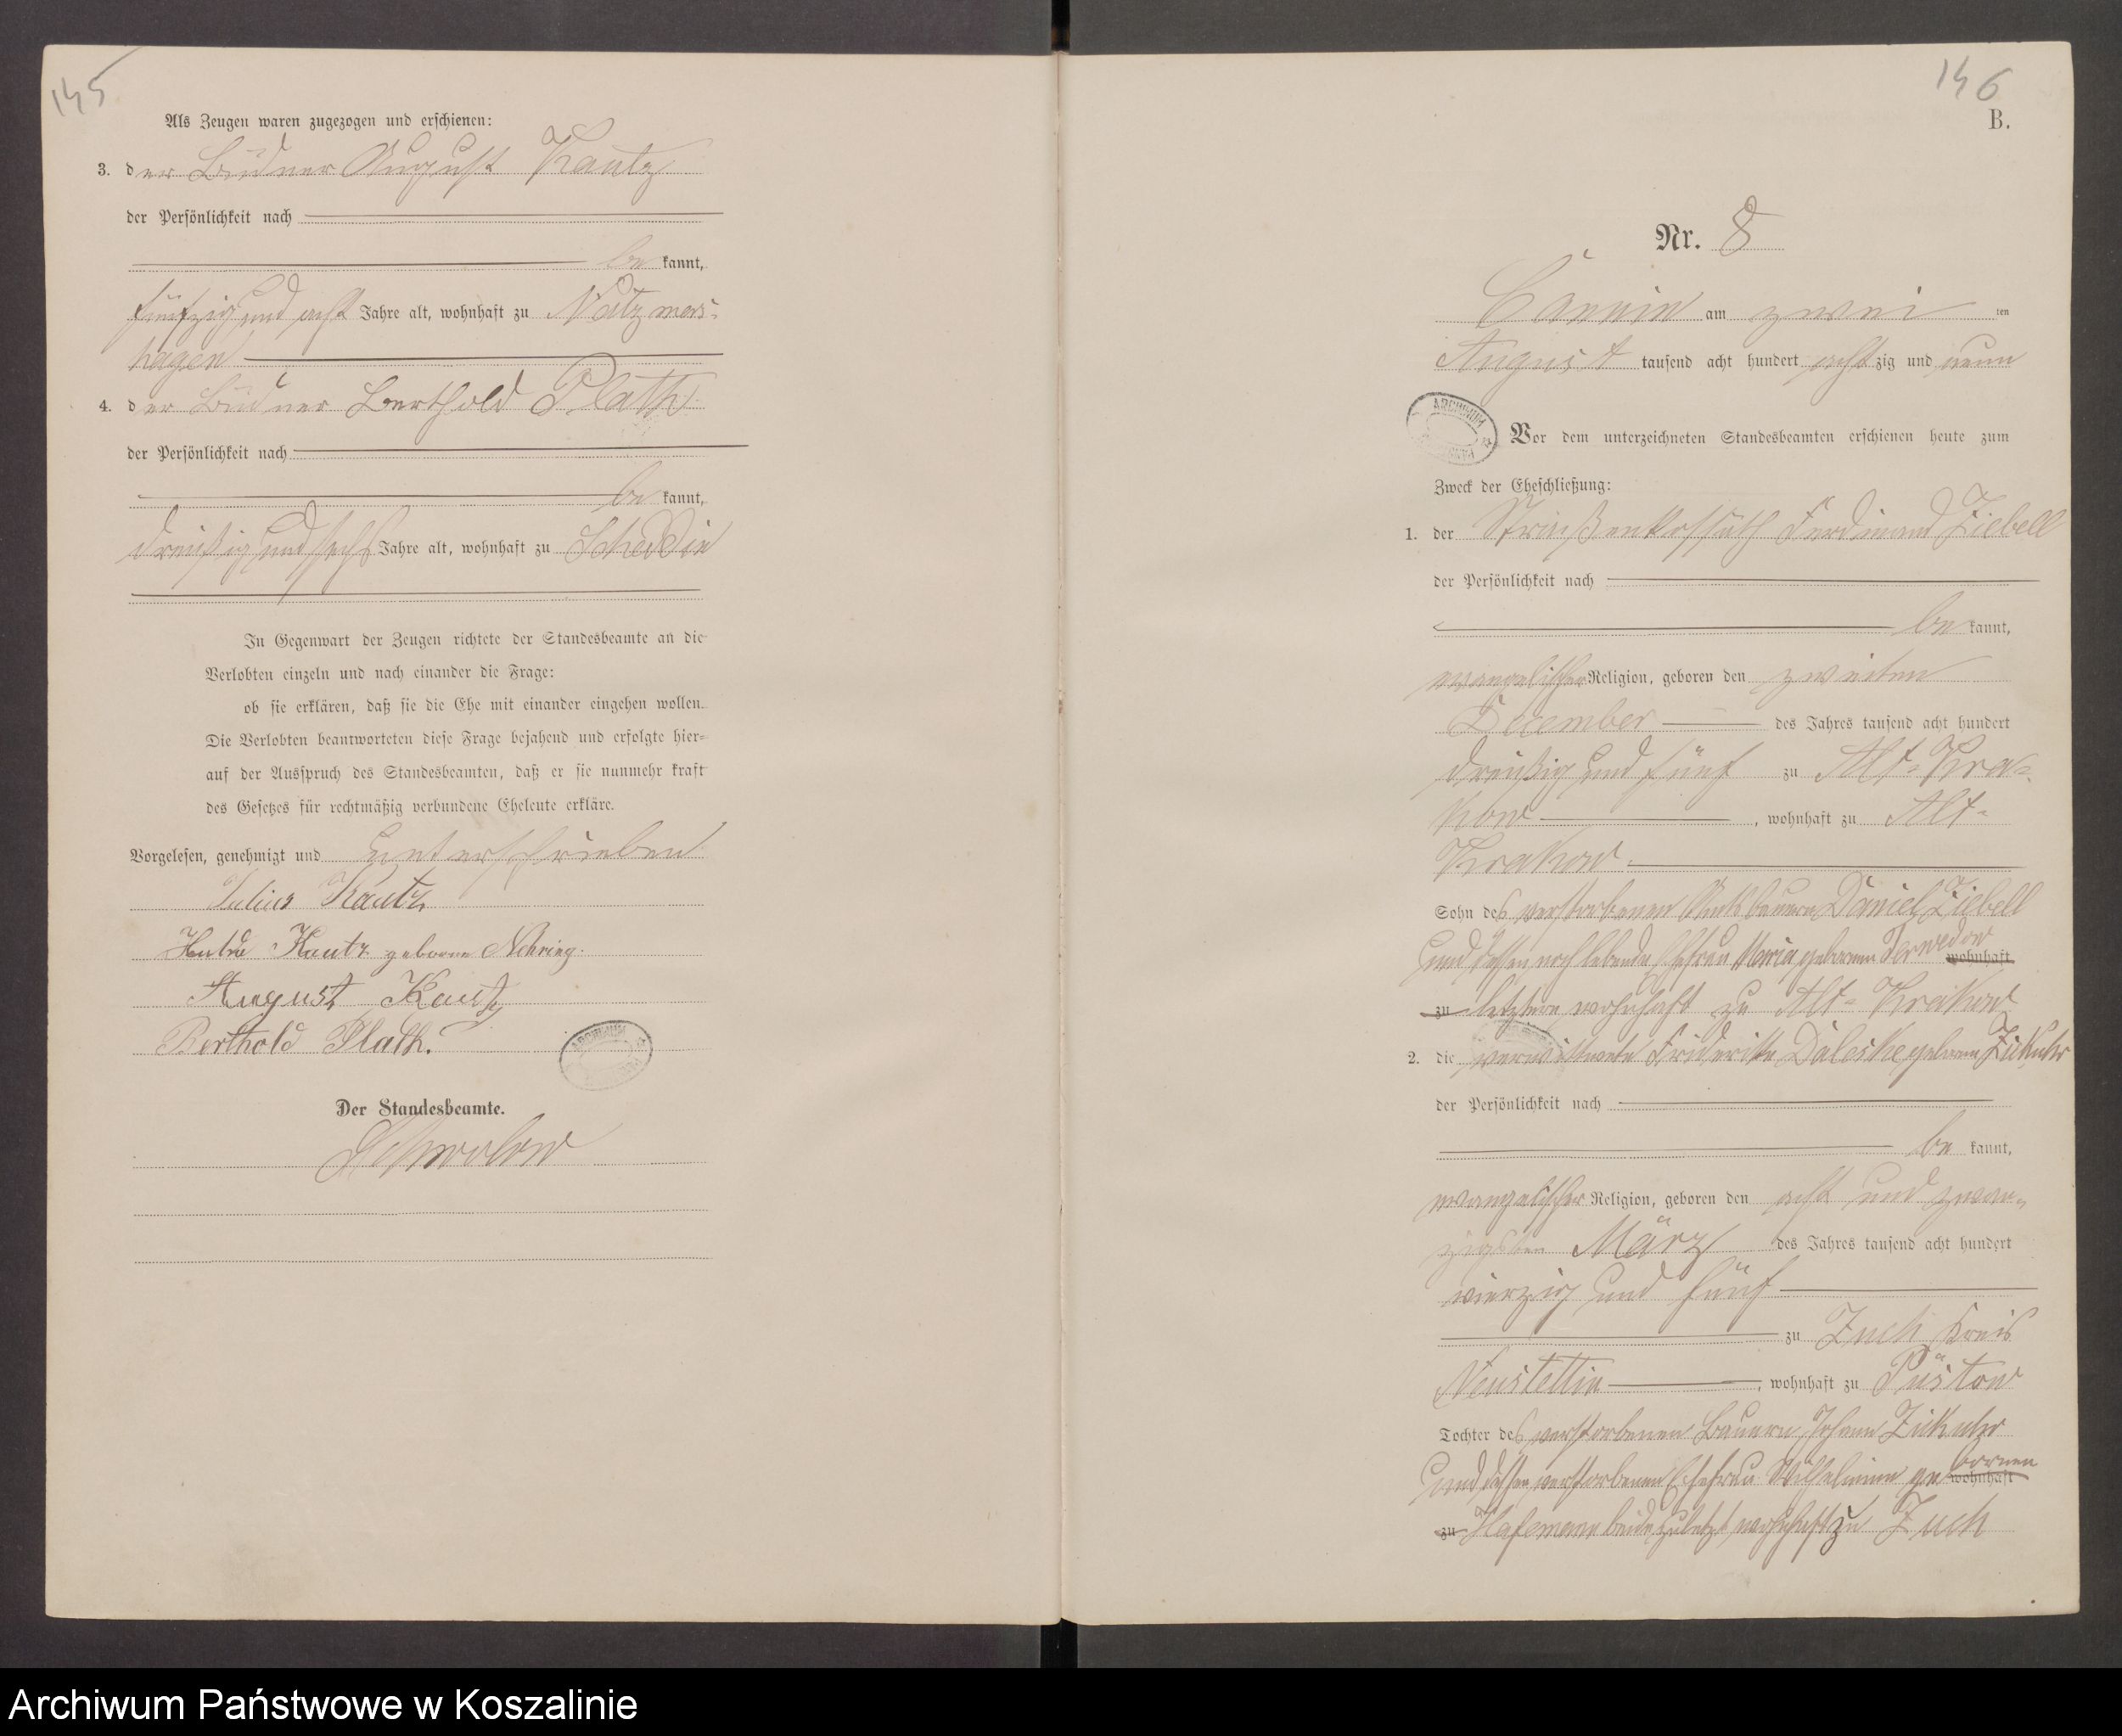 145
Als Zeugen waren zugezogen und erschienen:
3. der Büdner August Kautz
der Persönlichkeit nach
be kannt,
fünfzig und acht Jahre alt, wohnhaft zu Natzmers-
hagen
4. der Büdner Berthold Plath
der Persönlichkeit nach
be kannt,
dreißig und sechs Jahre alt, wohnhaft zu Scheddin
In Gegenwart der Zeugen richtete der Standesbeamte an die
Verlobten einzeln und nach einander die Frage:
ob sie erklären, daß sie die Ehe mit einander eingehen wollen.
Die Verlobten beantworteten diese Frage bejahend und erfolgte hier-
auf der Ausspruch des Standesbeamten, daß er sie nunmehr kraft
des Gesetzes für rechtmäßig verbundene Eheleute erkläre.
Vorgelesen, genehmigt und unterschrieben
Julius Kautz
Kautz geborne Nehring.
August Kautz
Berthold Plath.
ARCHIWUM
Der Standesbeamte.
146
B.
Nr. 8
am zwei ten
August tausend acht hundert achtzig und neun
ARCHIWUM
Vor dem unterzeichneten Standesbeamten erschienen heute zum
Zweck der Eheschließung:
1. der Ferdinand Ziebell
der Persönlichkeit nach
be kannt,
evangelischer Religion, geboren den zweiten
December des Jahres tausend acht hundert
dreißig und fünf zu Alt-Kra-
kow, wohnhaft zu Alt-
Krakow
Sohn des verstorbenen Daniel Ziebell
und dessen noch lebende Ehefrau Maria gebornen wohnhaft
zu letztere wohnhaft zu Alt-Krakow
2. die verwittwete Friderike Daleske geborne Zickuhr
der Persönlichkeit nach
be kannt,
evangelischer Religion, geboren den acht und zwan-
zigsten März des Jahres tausend acht hundert
vierzig und fünf
zu Zuch Kreis
Neustettin, wohnhaft zu Püstow
Tochter des verstorbenen Bauern Johann Zickuhr
und dessen verstorbenen Ehefrau Wilhelmine ge bornen wohnhaft
zu Hasemann beide zuletzt wohnhaft zu Zuch
Archiwum Państwowe w Koszalinie